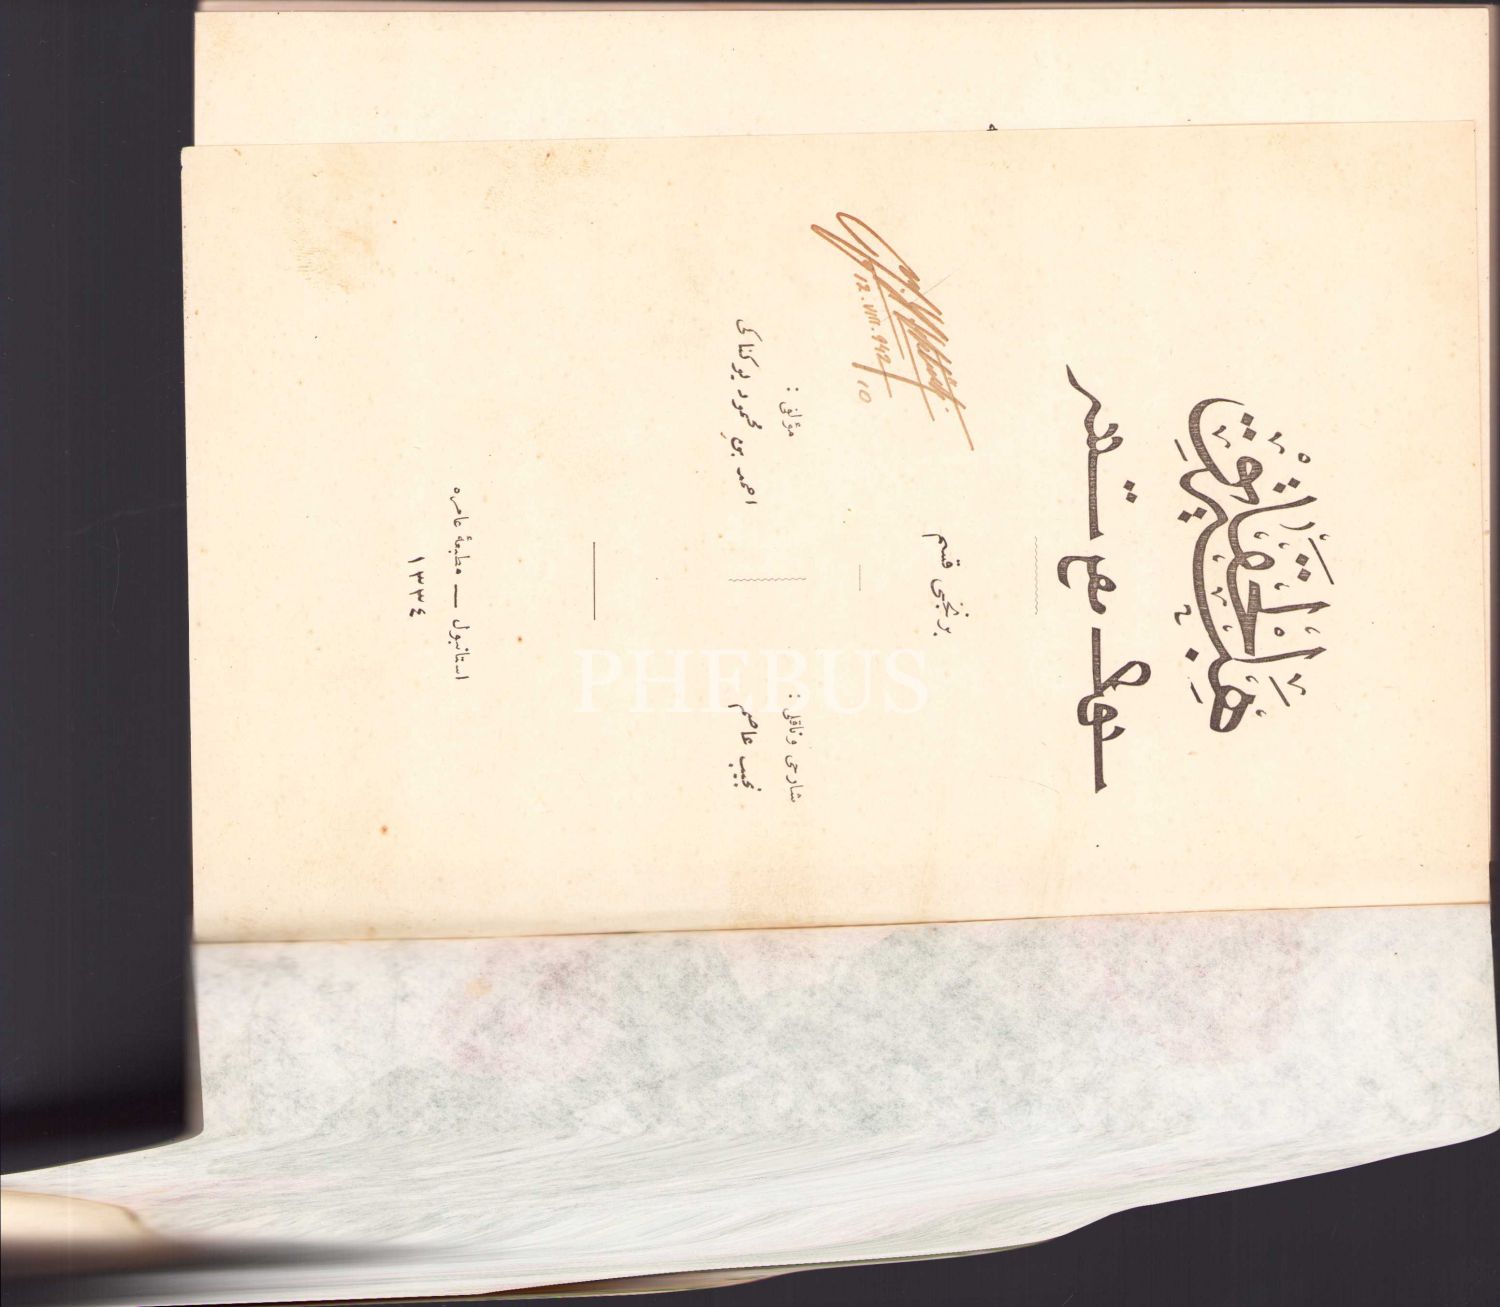 هِبَةُ الْحَقَائِقْ
برنجی قسم
مؤلفی :
احمد بن محمود یوکناکی
شارحی و ناقلی :
نجیب عاصم
استانبول — مطبعهٔ عامره
١٣٣٤
12.VIII.942
10
PHEBUS